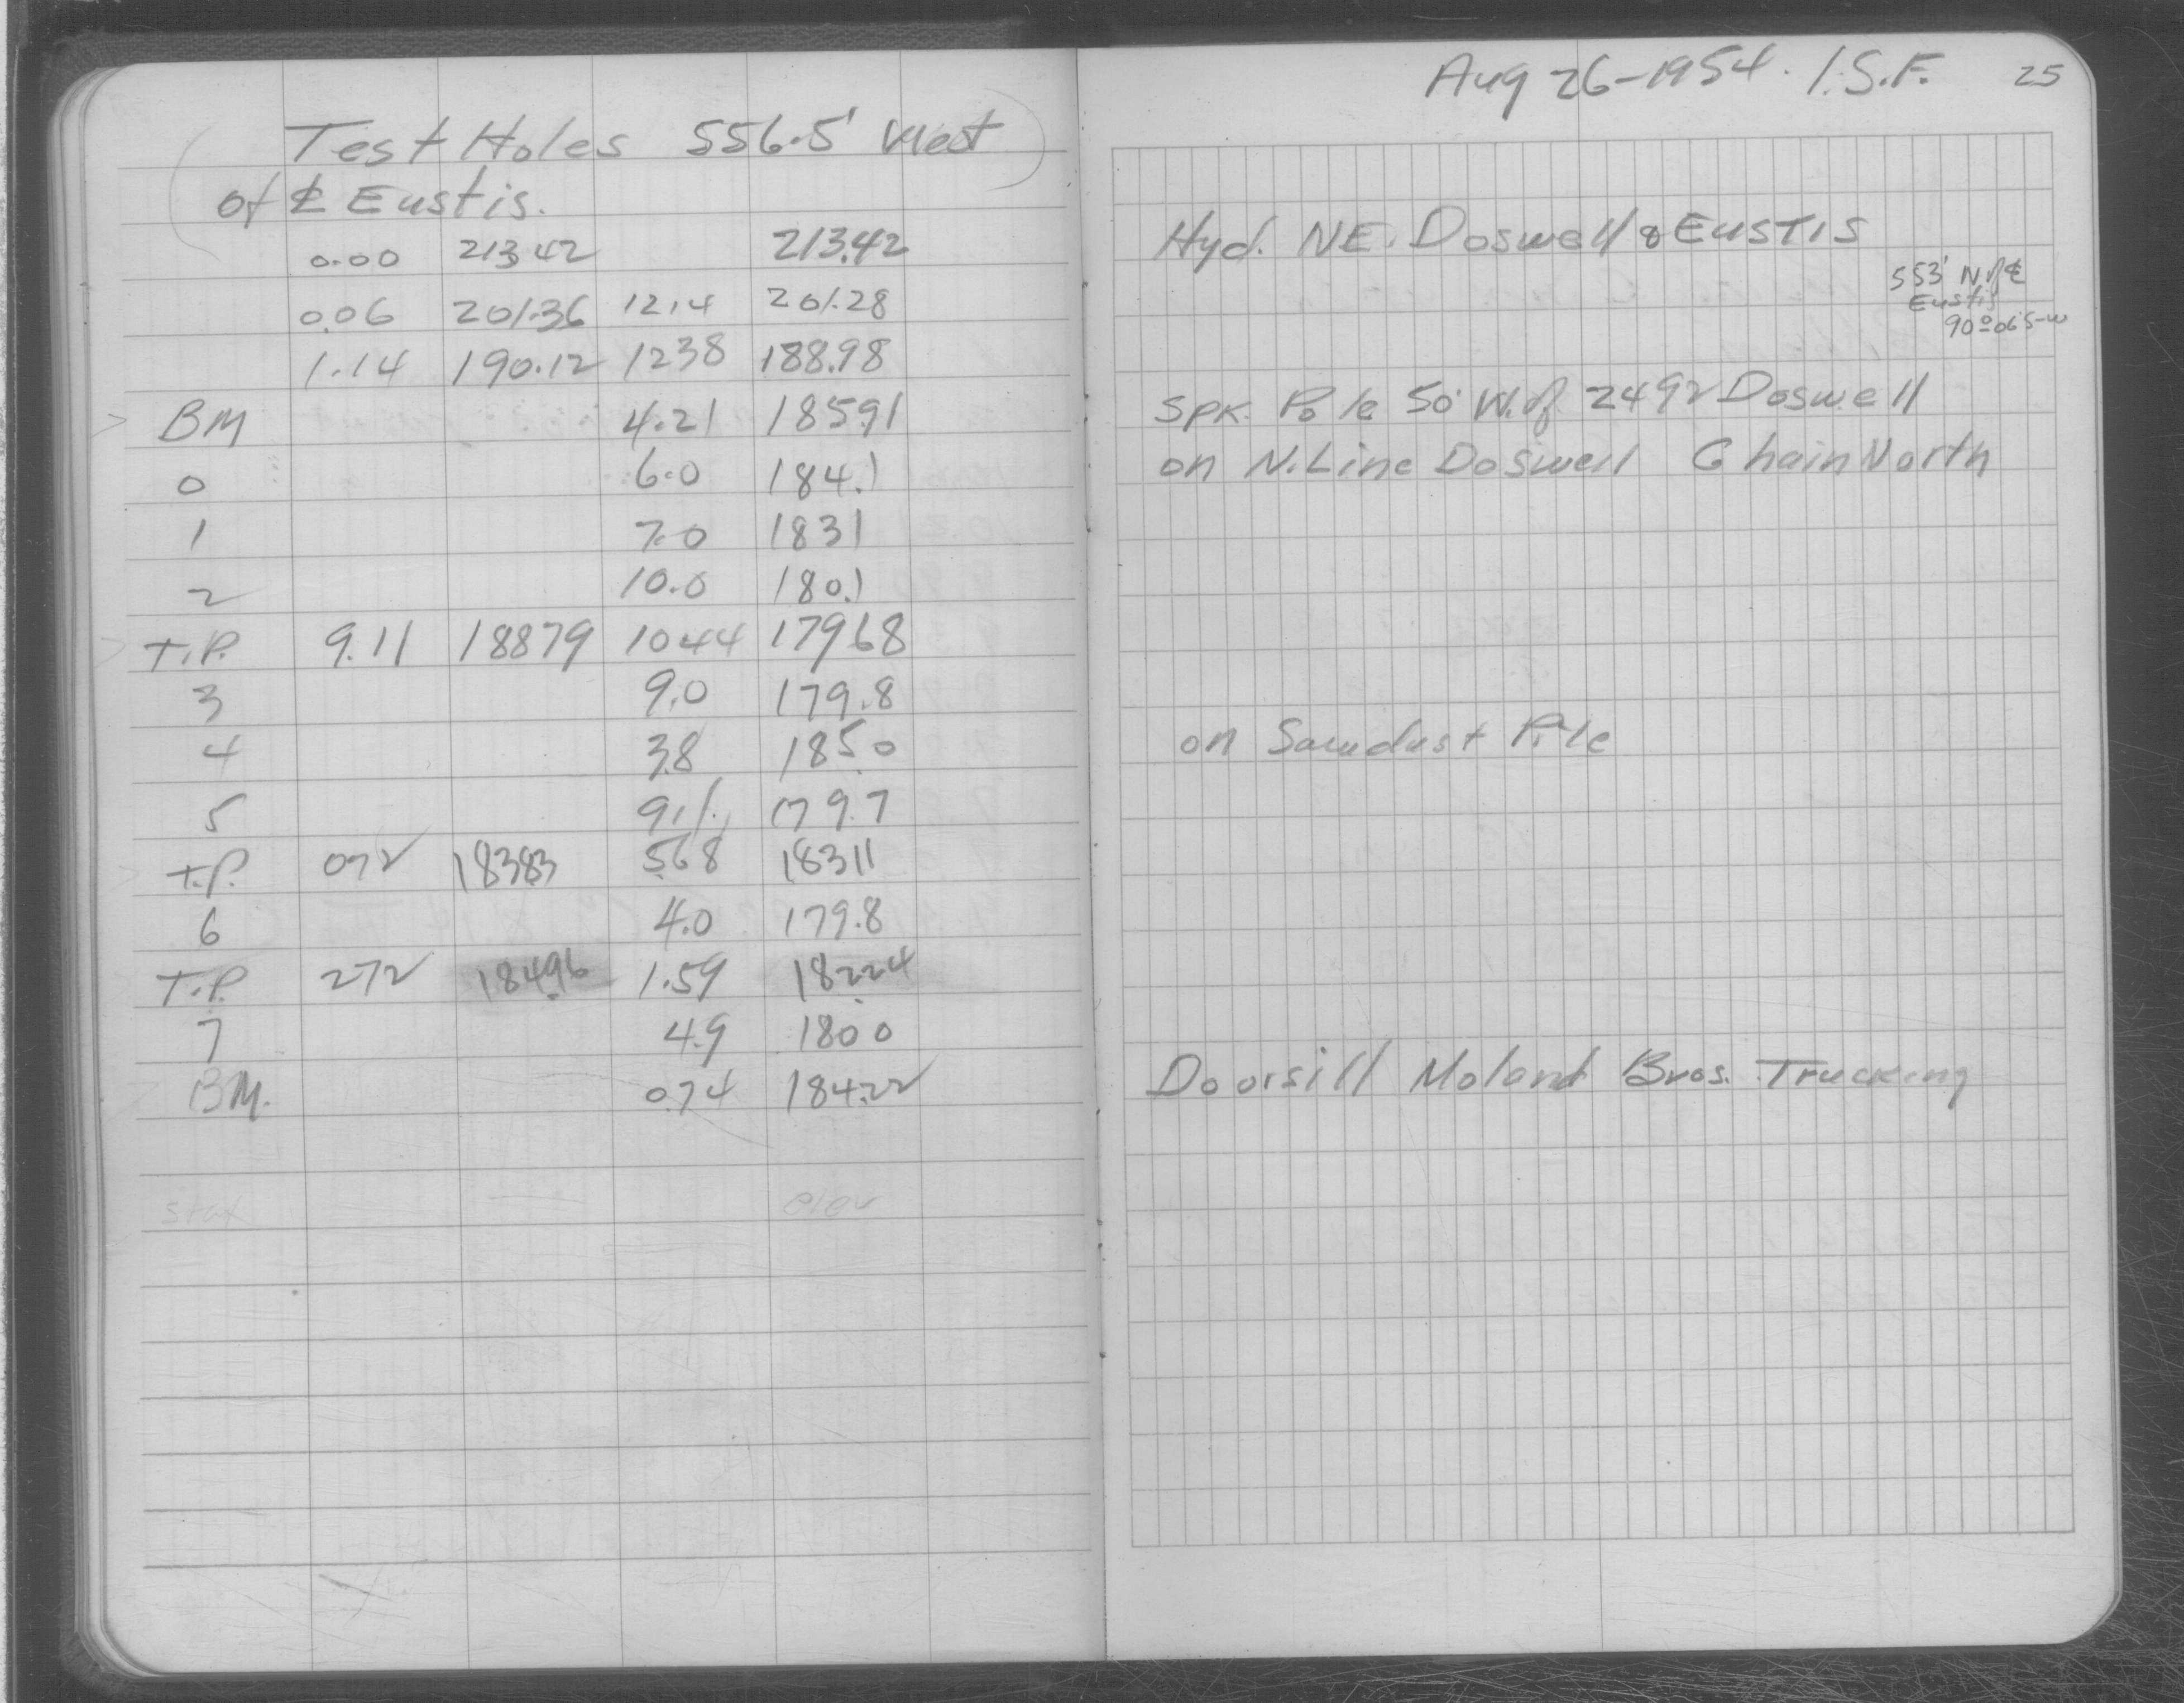 Test Holes 556.5' West
of ℄ Eustis.
0.00 213.42 213.42
0.06 201.36 12.14 201.28
1.14 190.12 1238 188.98
BM 4.21 185.91
0 6.0 184.1
1 7.0 183.1
2 10.0 180.1
T.P. 9.11 18879 1044 17968
3 9.0 179.8
4 3.8 185.0
5 9.1 179.7
T.P. 072 183.83 5.68 183.11
6 4.0 179.8
T.P. 272 184.96 1.59 182.24
7 4.9 180.0
BM. 0.74 184.22
elev
Aug 26-1954. I.S.F. 25
Hyd. NE. Doswell & EUSTIS
553' N. of ℄
Eustis
90º06 S-W
Spk. Pole 50' W. of 2492 Doswell
on N. Line Doswell Chain North
on Sawdust Pile
Doorsill Moland Bros. Trucking